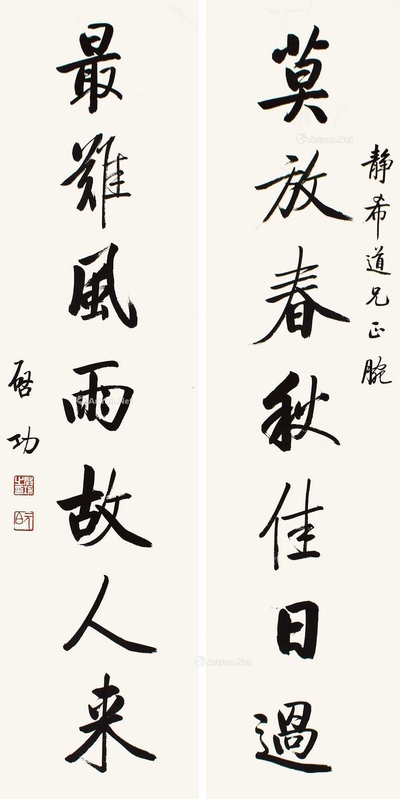 静希道兄正腕
莫放春秋佳日過
最難風雨故人来
启功